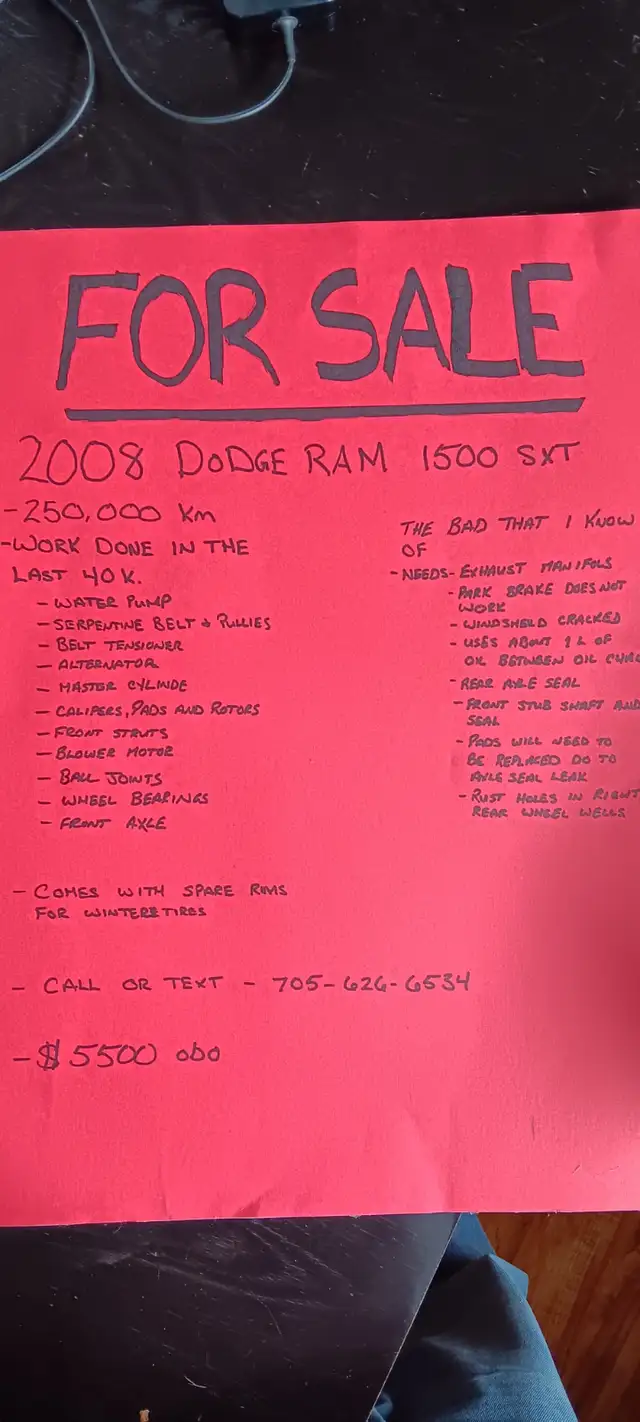 FOR SALE
2008 DODGE RAM 1500 SXT
-250,000 Km
-WORK DONE IN THE
LAST 40K.
- WATER PUMP
- SERPENTINE BELT & PULLIES
- BELT TENSIONER
- ALTERNATOR
- MASTER CYLINDE
- CALIPERS, PADS AND ROTORS
- FRONT STRUTS
- BLOWER MOTOR
- BALL JOINTS
- WHEEL BEARINGS
- FRONT AXLE
THE BAD THAT I KNOW
OF
-NEEDS- EXHAUST MANIFOLS
- PARK BRAKE DOES NOT
WORK
- WINDSHELD CRACKED
- USES ABOUT 1 L OF
OIL BETWEEN OIL CHAG
- REAR AXLE SEAL
- FRONT STUB SHAFT AND
SEAL
- PADS WILL NEED TO
BE REPLACED DO TO
AXLE SEAL LEAK
- RUST HOLES IN RIGHT
REAR WHEEL WELLS
- COMES WITH SPARE RIMS
FOR WINTERETIRES
- CALL OR TEXT - 705-626-6534
- $5500 obo